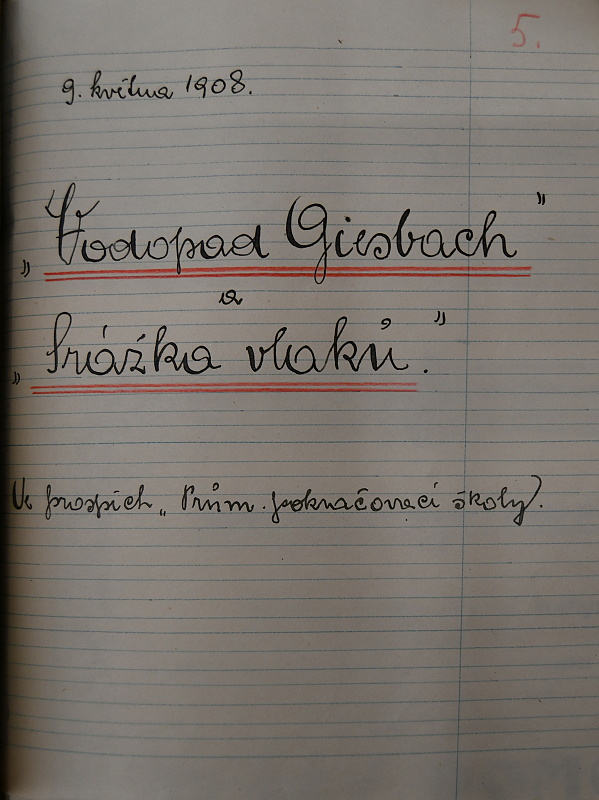 5.
9. května 1908.
„Vodopad Giesbach"
a
„Srážka vlaků."
Ve prospěch „Prům. pokračovací školy).